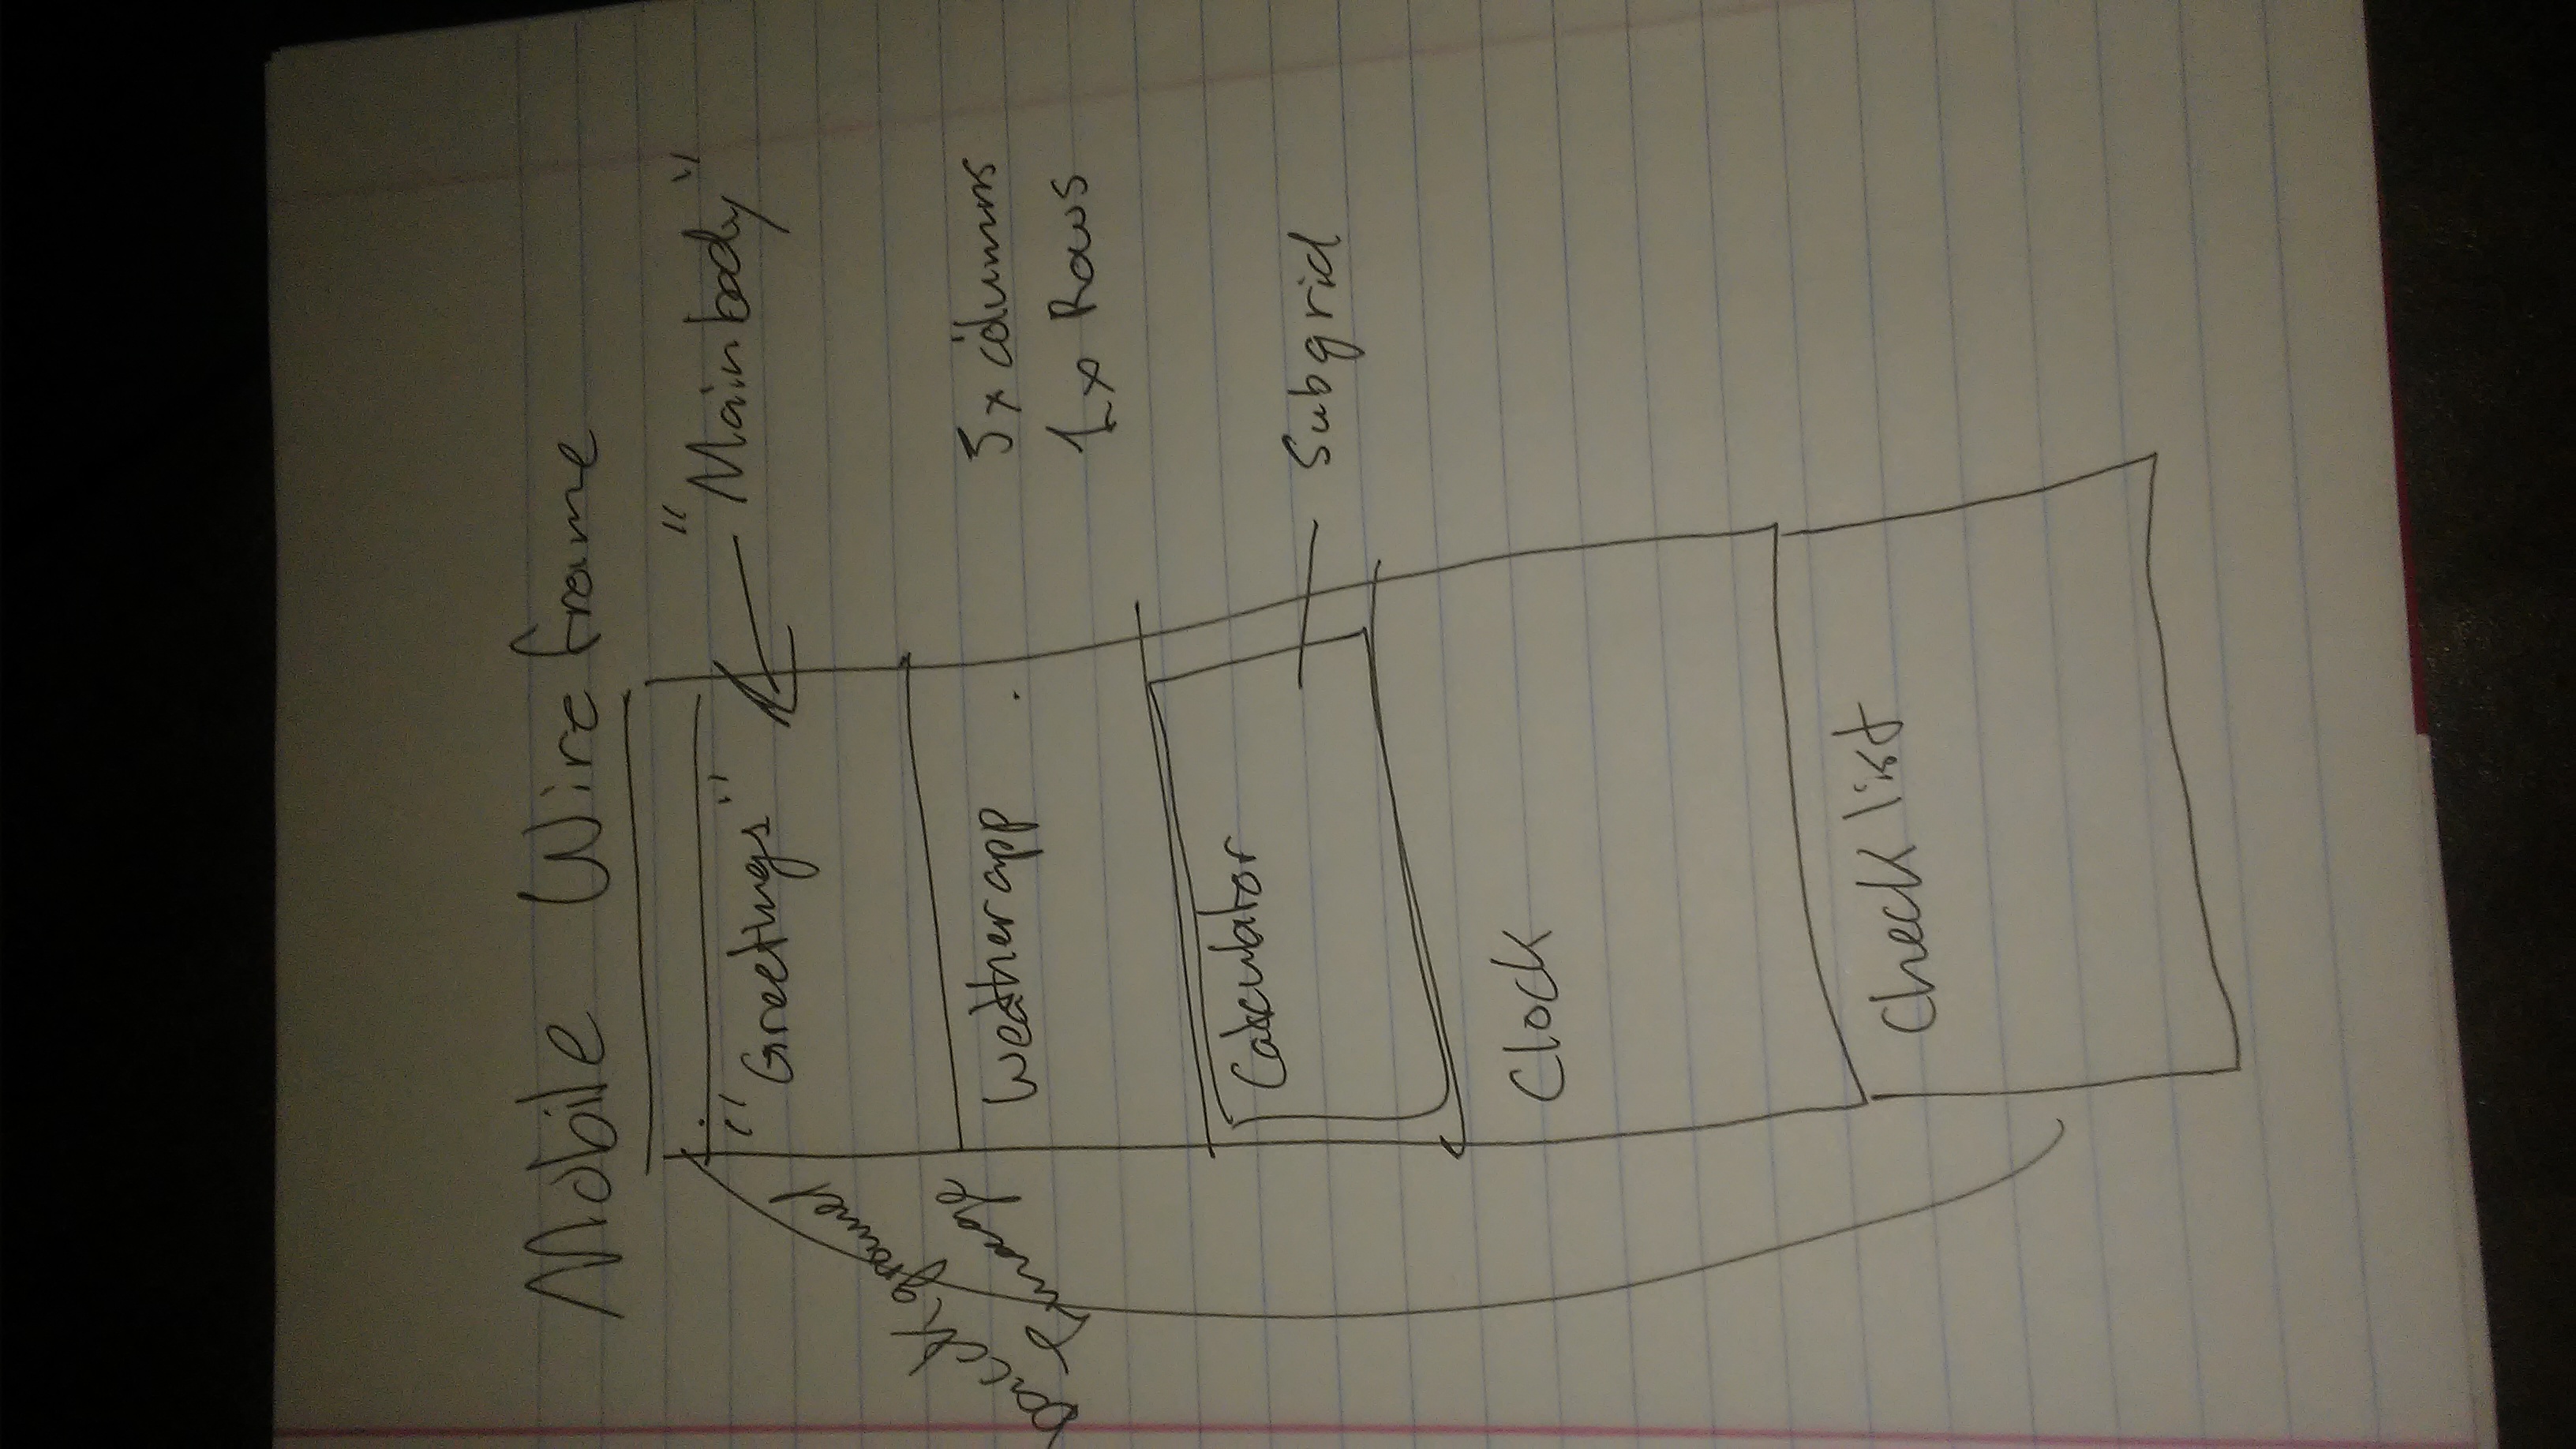 Mobile Wireframe
"Greetings"
"Mainbody"
background
Image
Weather app
5x columns
1x Rows
Calculator
Subgrid
Clock
Check list